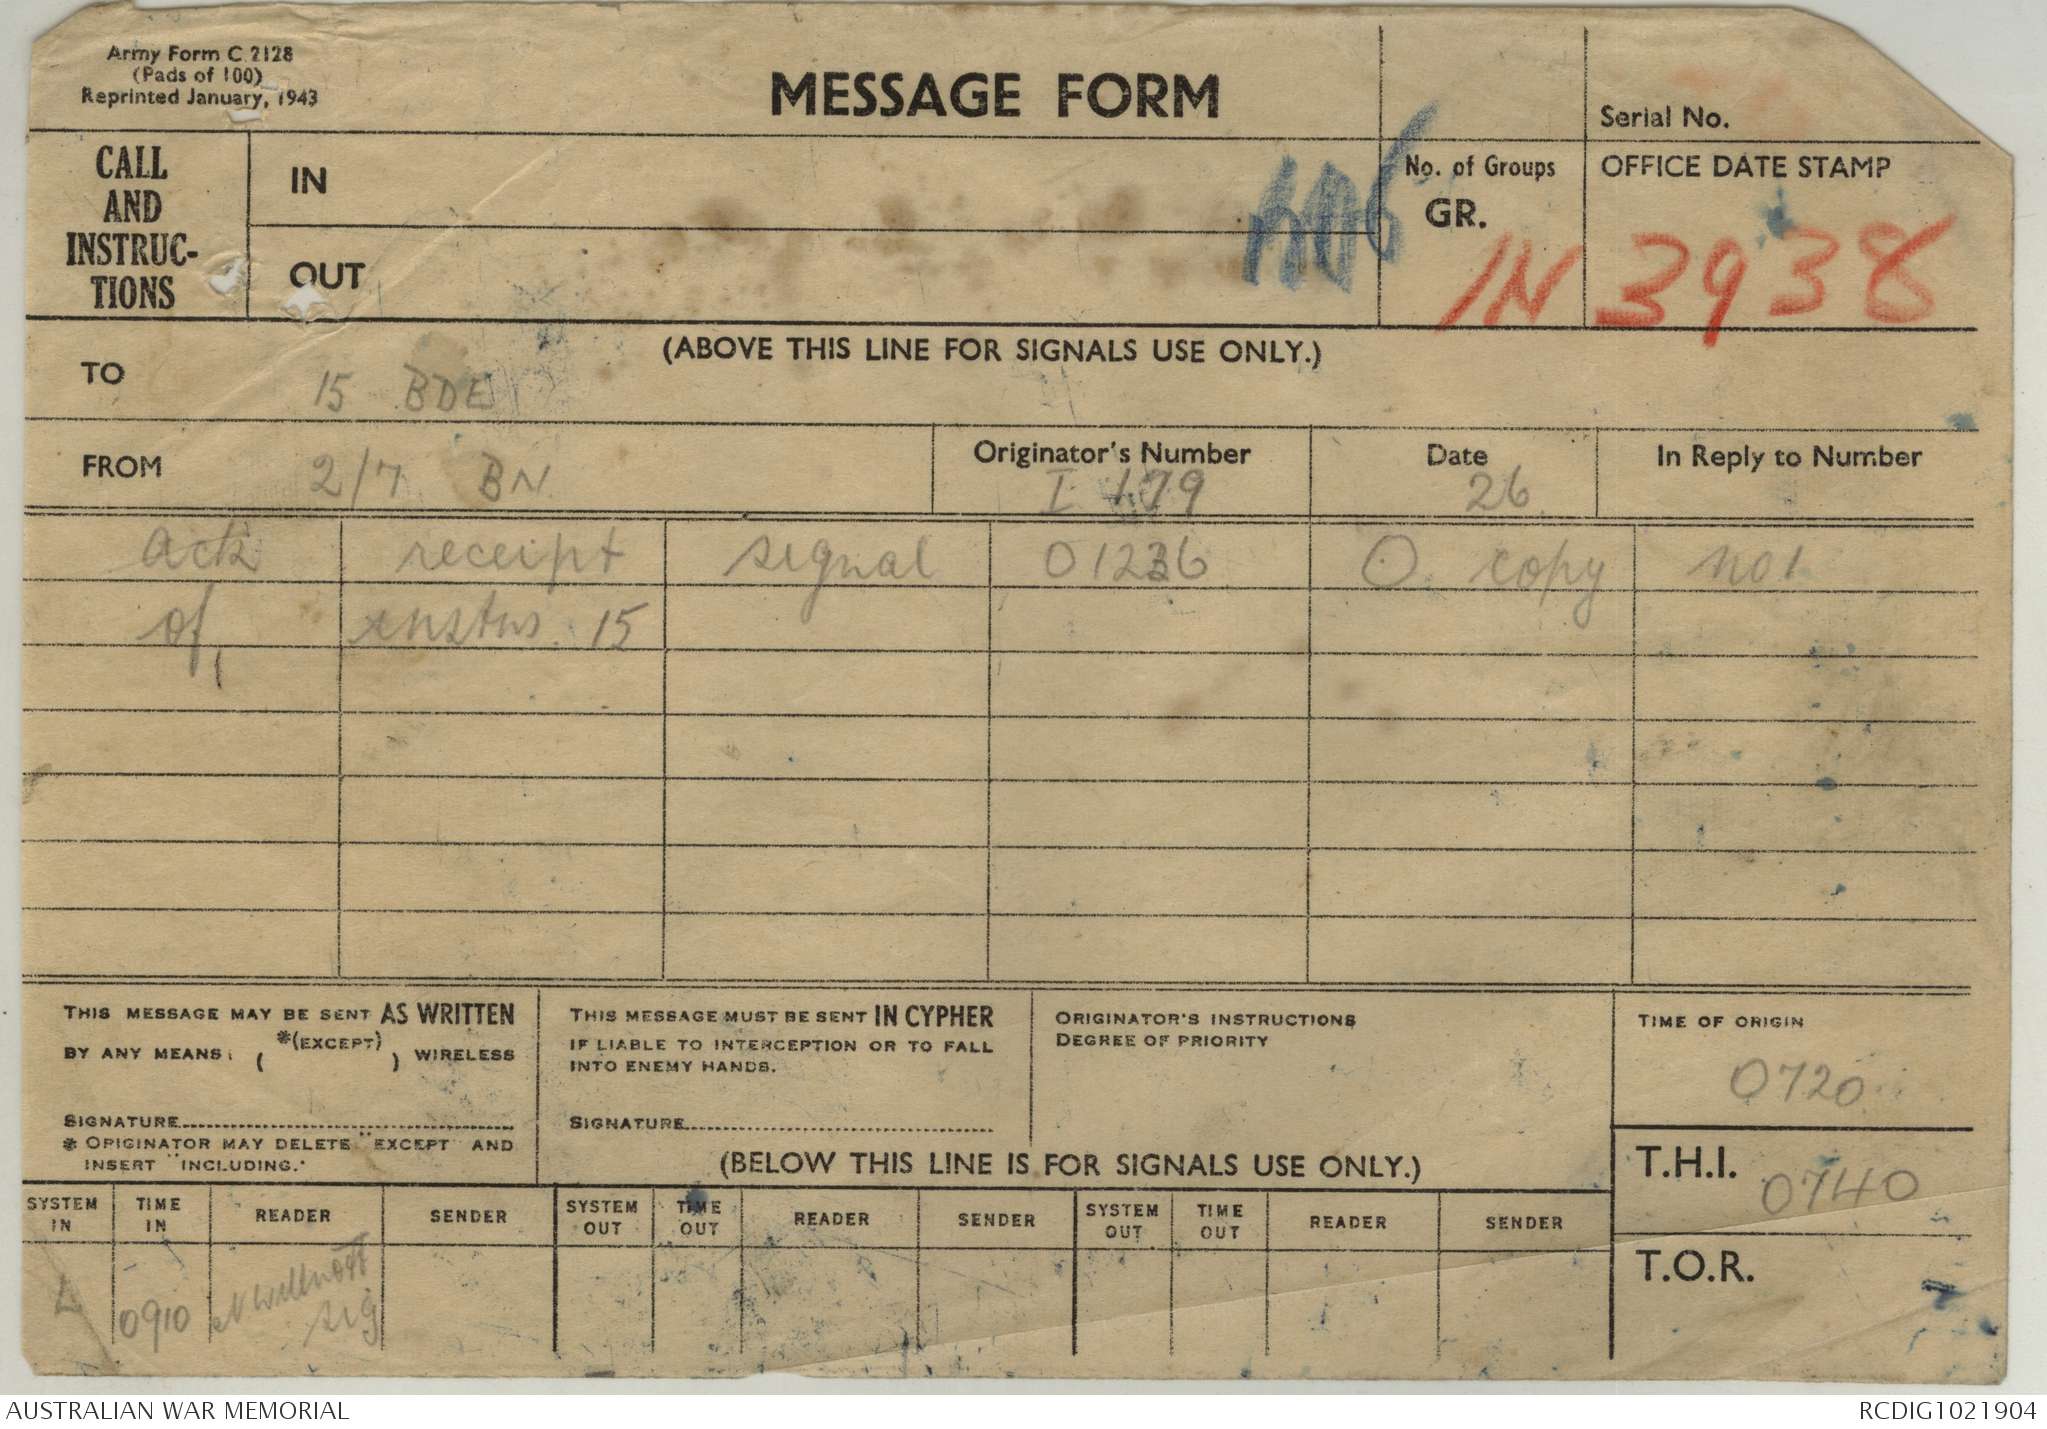 Army Form C 2128
(Pads of 100)
Reprinted January, 1943
MESSAGE FORM
Serial No.
CALL
AND
INSTRUC-
TIONS
IN
OUT
No. of Groups
GR.
OFFICE DATE STAMP
IN 3938
(ABOVE THIS LINE FOR SIGNALS USE ONLY.)
TO 15 BDE
FROM 2/7 BN
Originator's Number
I 179
Date
26
In Reply to Number
ack receipt signal 01236 O copy no 1
of 15
THIS MESSAGE MAY BE SENT AS WRITTEN
BY ANY MEANS: ( *(EXCEPT) ) WIRELESS
SIGNATURE
* ORIGINATOR MAY DELETE "EXCEPT" AND
INSERT "INCLUDING."
THIS MESSAGE MUST BE SENT IN CYPHER
IF LIABLE TO INTERCEPTION OR TO FALL
INTO ENEMY HANDS.
SIGNATURE
ORIGINATOR'S INSTRUCTIONS
DEGREE OF PRIORITY
TIME OF ORIGIN
0720
(BELOW THIS LINE IS FOR SIGNALS USE ONLY.)
T.H.I. 0740
T.O.R.
SYSTEM IN TIME IN READER SENDER SYSTEM OUT TIME OUT READER SENDER SYSTEM OUT TIME OUT READER SENDER
L 0910
sig
AUSTRALIAN WAR MEMORIAL RCDIG1021904